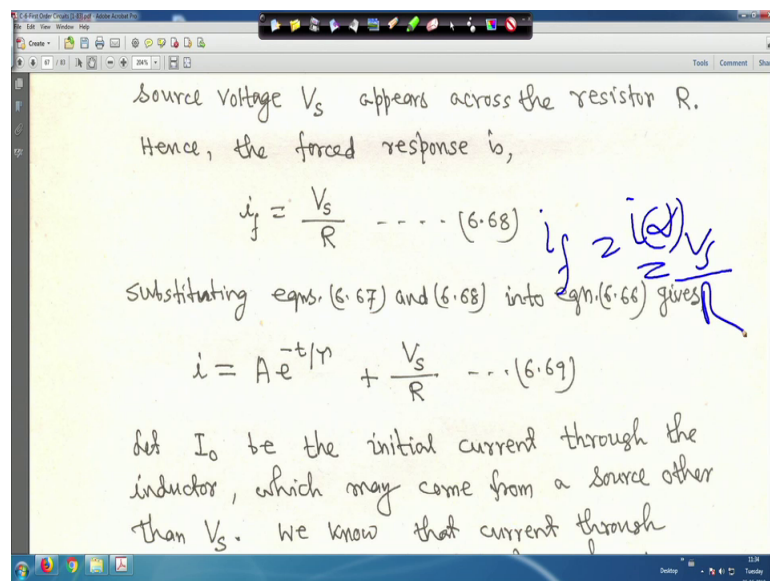 C-6-First Order Circuits [1-83].pdf - Adobe Acrobat Pro
File Edit View Window Help
Create
67 / 83 204% Tools Comment
source voltage Vs appears across the resistor R.
Hence, the forced response is,
if = Vs/R ----- (6.68)
if = i(∞) = Vs/R
substituting eqns. (6.67) and (6.68) into eqn.(6.66) gives,
i = Ae^-t/τ + Vs/R --- (6.69)
Let I0 be the initial current through the
inductor, which may come from a source other
than Vs. We know that current through
Desktop 11:34
Tuesday